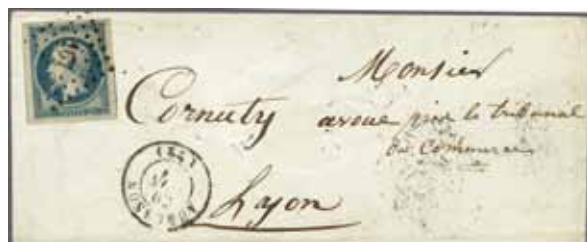 Monsieur
Cornuty avoué près le tribunal
de Commerce
Lyon
AUBUSSON (22)